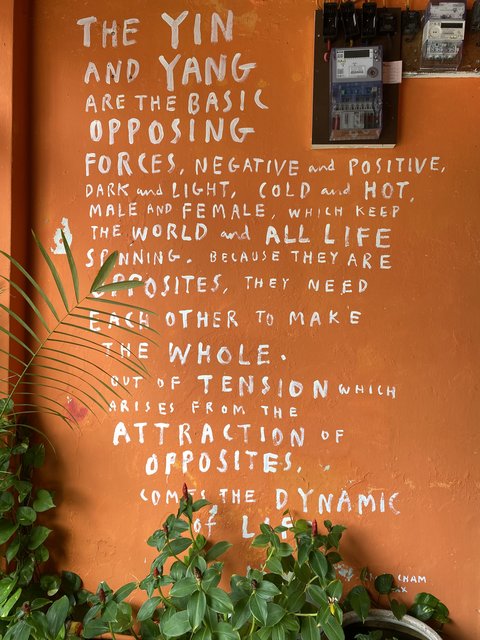 THE YIN
AND YANG
ARE THE BASIC
OPPOSING
FORCES, NEGATIVE and POSITIVE,
DARK and LIGHT, COLD and HOT,
MALE AND FEMALE, WHICH KEEP
THE WORLD and ALL LIFE
SPINNING. BECAUSE THEY ARE
OPPOSITES, THEY NEED
EACH OTHER TO MAKE
THE WHOLE.
OUT OF TENSION WHICH
ARISES FROM THE
ATTRACTION OF
OPPOSITES.
COMES THE DYNAMIC
of LIF
CHAM